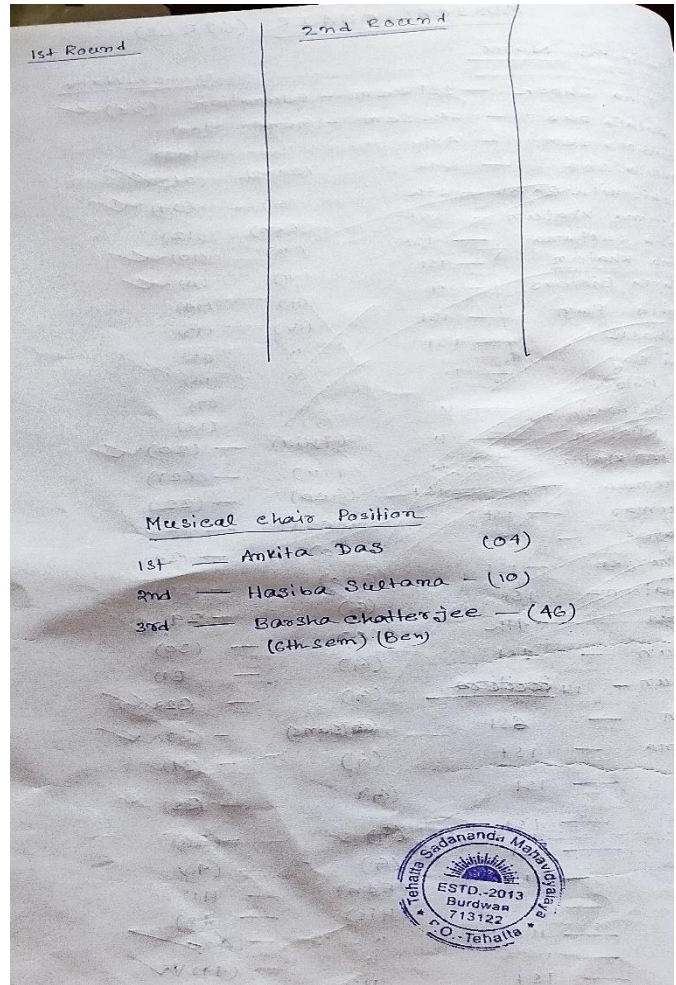 1st Round
2nd Round
Musical chair Position
1st — Ankita Das (04)
2nd — Hasiba Sultana - (10)
3rd — Barsha Chatterjee — (46)
(6th sem) (Ben)
Tehatta Sadananda Mahavidyalaya
ESTD.-2013
Burdwan
713122
P.O.-Tehatta